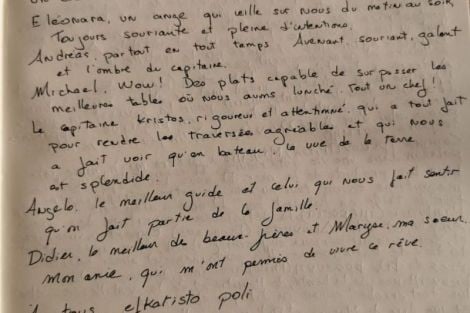 Eléonara, un ange qui veille sur nous du matin au soir
Toujours souriante et pleine d'intentions.
Andréas, partout en tout temps Avenant, souriant, galant
et l'ombre du capitaine.
Michael, Wow! Des plats capable de surpasser les
meilleures tables où nous avons lunché. Tout un chef!
Le capitaine Kristos, rigoureux et attentionné, qui a tout fait
pour rendre les traversées agréables et qui nous
a fait voir qu'en bateau, la vue de la terre
est splendide.
Angelo, le meilleur guide et celui qui nous fait sentir
qu'on fait partie de la famille.
Didier, le meilleur des beaux-frères et Maryse, ma soeur,
mon amie, qui m'ont permis de vivre ce rêve.
À tous efkaristo poli